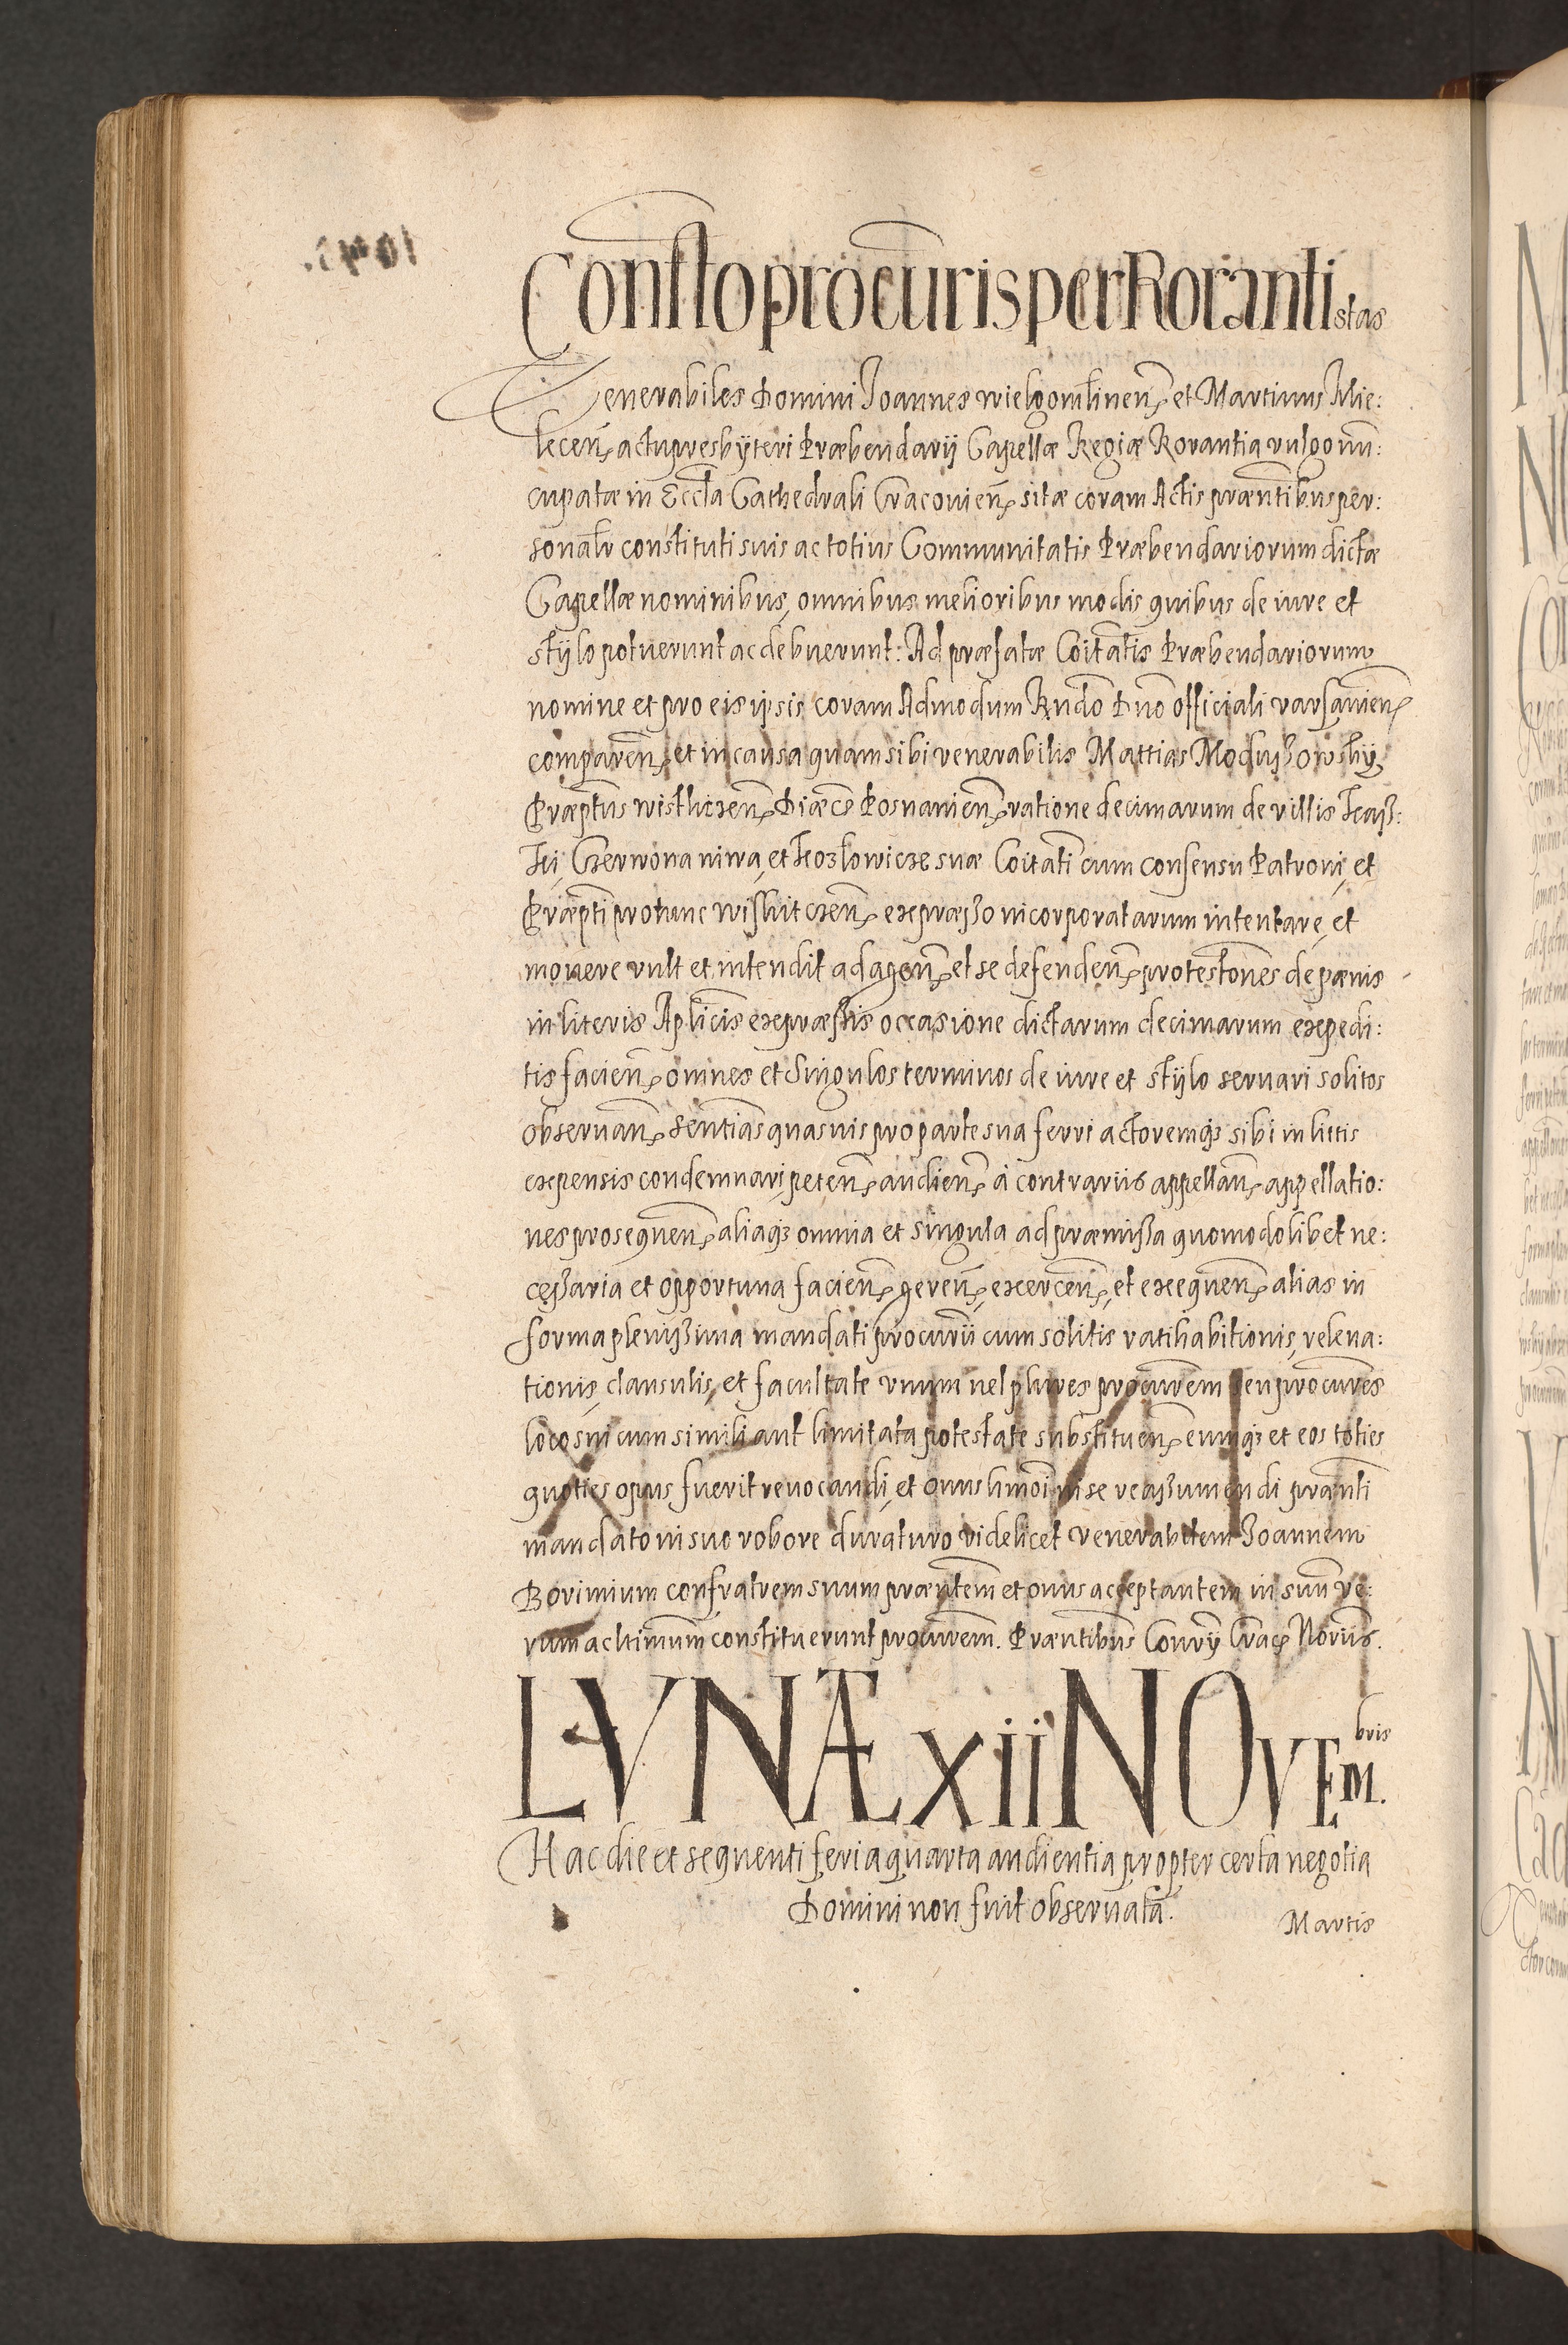 Constto procuris per Rorantistas
Venerabiles Domini Joannes wielgomlinen et Martinus Mie:
lecen actu presbÿteri Præbendarij Capellæ Regiæ Rorantia vulgo nun:
cupatæ in Eccla Cathedrali Cracovien sitæ coram Actis præntibus per:
sonalr constituti suis ac totius Communitatis Præbendariorum dictæ
Capellæ nominibus, omnibus melioribus modis quibus de iure et
stÿlo potuerunt ac debuerunt: Ad præfatæ Coitatis Præbendariorum
nomine et pro eis ipsis coram Admodum Rndo Dno officiali varsavien
comparen, et in causa quam sibi venerabilis Mattias Modliszowskÿ
Præptus wislicien Diæcs Posnanien ratione decimarum de villis
Czerwona niwa, et Kozlowicze suæ Coitati cum consensu Patroni, et
Præpti pro tunc expræsso incorporatarum intentare, et
movere vult et intendit ad agen et se defenden protestones de pænis
in literis Aplicis expræssis occasione dictarum decimarum expedi:
tis facien omnes et Singulos terminos de iure et stÿlo servari solitos
observan sentias quasuis pro parte sua ferri actoremq3 sibi in littis
expensis condemnari peten audien à contrariis appellan appellatio:
nes prosequen aliaq3 omnia et singula ad præmissa quomodolibet ne:
cessaria et opportuna facien geren, exercen, et exequen alias in
forma plenissima mandati procurii cum solitis ratihabitionis, releua:
tionis, clausulis, et facultate vnum uel plures procurem seu procures
loco sui cum simili aut limitata potestate substituen eumq3 et eos toties
quoties opus fuerit revocandi, et onus hmoi in se reassumendi prænti
mandato in suo robore duraturo videlicet venerabilem Joannem
Borimium confratrem suum præntem et onus acceptantem in suum ve:
rum ac ltimum constituerunt procurem. Præntibus Conrÿ Crac Noriis.
LVNÆ xiii NOVEM.bris
Hac die et sequenti feria quarta audientia propter certa negotia
Domini non fuit observata.
Martis